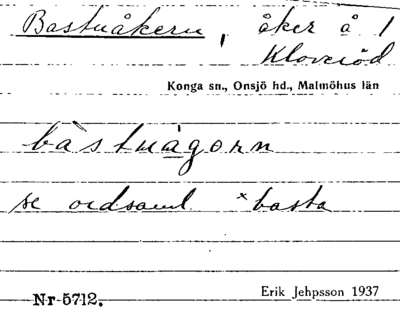 Bastuåkern, åker å 1
Kloveröd
Konga sn., Onsjö hd., Malmöhus län
bàstuågorn
se ordsaml. ˣbasta
Erik Jehpsson 1937
Nr 5712.